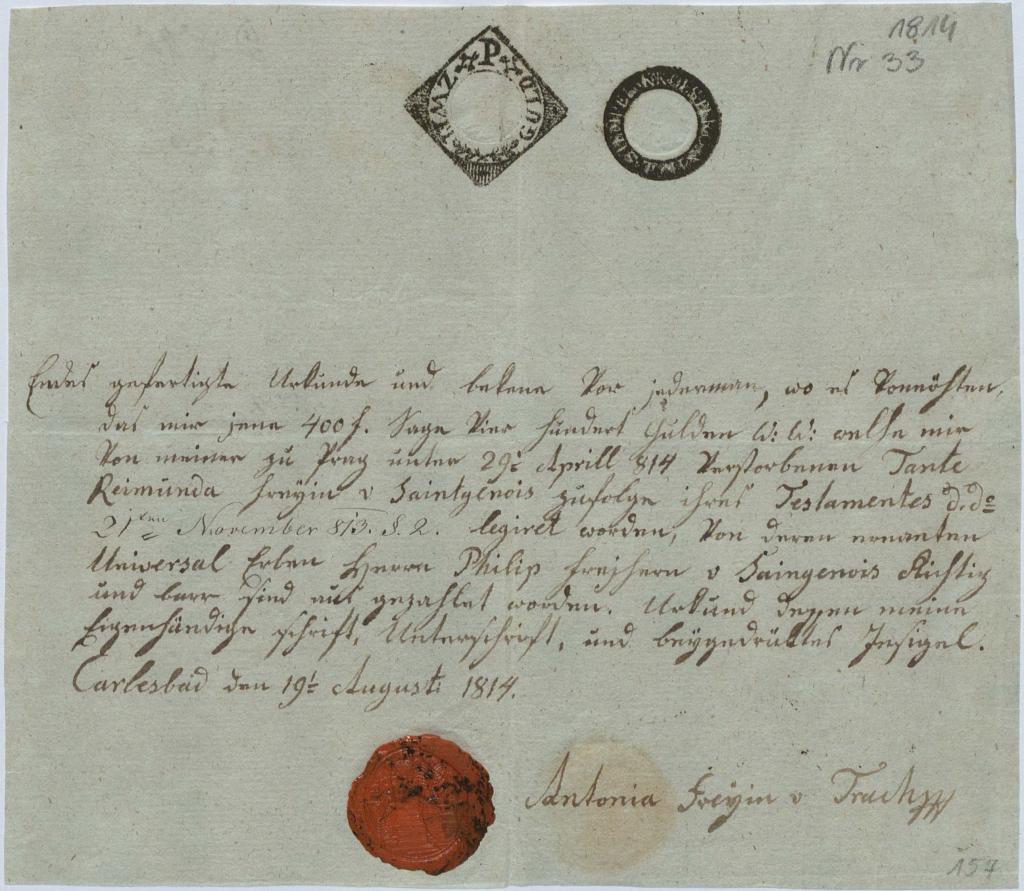 1814
Nr 33
P
ZWEI
GULD
Endes gefertigte Urkunde und bekene vor jederman, wo es vonnöhten,
das mir jene 400 f. Sage Vier hundert Gulden W: W: welche mir
Von meiner zu Prag unter 29t Aprill 814 verstorbenen Tante
Reimunda Freyin v Saintgenois zufolge ihres Testamentes d. do
21ten November 813. §. 2. legiret worden, von deren ernanten
Universal Erben Herrn Philip Freyhern v Saingenois Richtig
und barr sind aus gezahlet worden. Urkund dessen meine
Eigenhändige schrift, Unterschrift, und beygedrüktes Insigel.
Carlesbad den 19t Augusti 1814.
Antonia Freyin v Trach
157